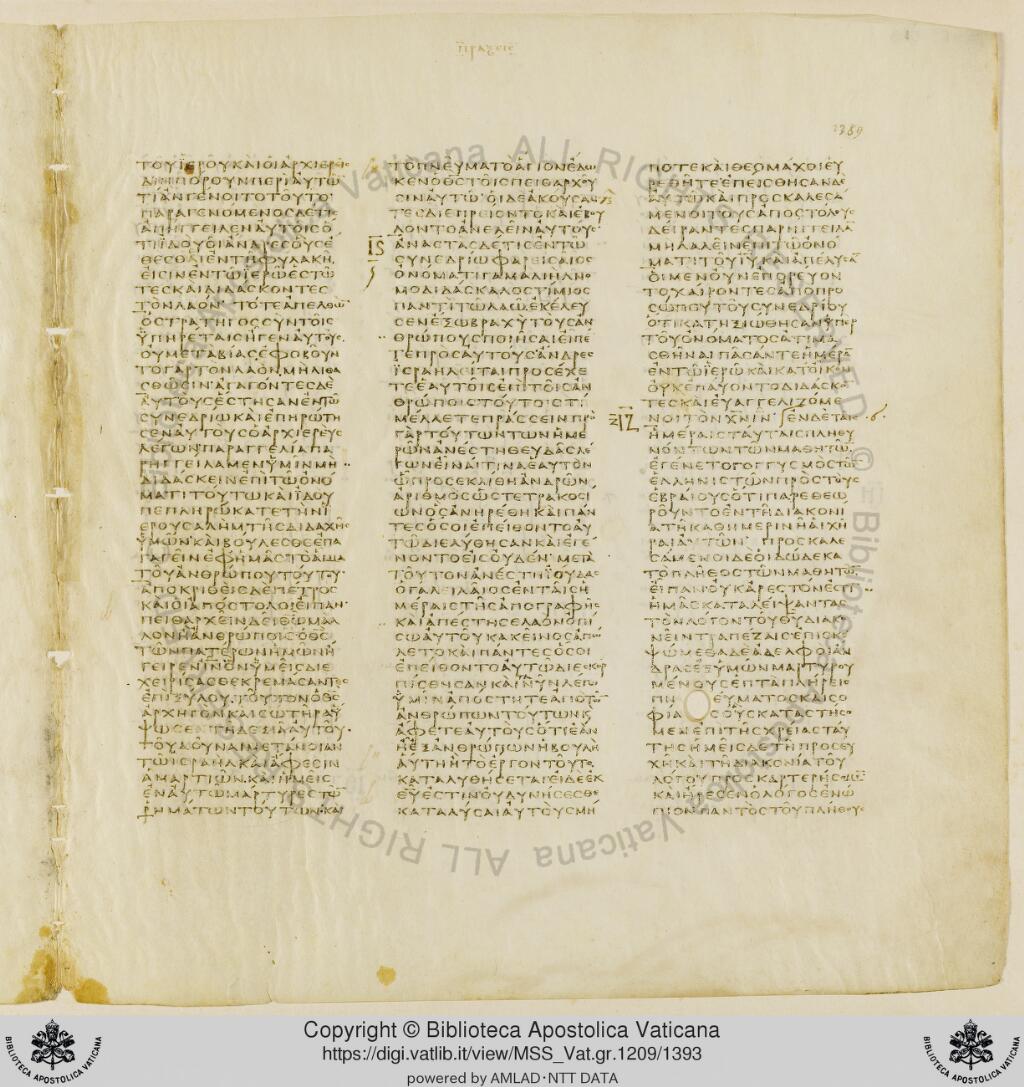 πραξεις
1389
ΤΟΥΙΕΡΟΥΚΑΙΟΙΑΡΧΙΕΡΕΙϹ
ΔΙΗΠΟΡΟΥΝΠΕΡΙΑΥΤΩ
ΤΙΑΝΓΕΝΟΙΤΟΤΟΥΤΟ
ΠΑΡΑΓΕΝΟΜΕΝΟϹΔΕΤΙϹ
ΑΠΗΓΓΕΙΛΕΝΑΥΤΟΙϹΟ
ΤΙΙΔΟΥΟΙΑΝΔΡΕϹΟΥϹΕ
ΘΕϹΘΕΕΝΤΗΦΥΛΑΚΗ
ΕΙϹΙΝΕΝΤΩΙΕΡΩΕϹΤΩ
ΤΕϹΚΑΙΔΙΔΑϹΚΟΝΤΕϹ
ΤΟΝΛΑΟΝ ΤΟΤΕΑΠΕΛΘΩ
ΟϹΤΡΑΤΗΓΟϹϹΥΝΤΟΙϹ
ΥΠΗΡΕΤΑΙϹΗΓΕΝΑΥΤΟΥϹ
ΟΥΜΕΤΑΒΙΑϹΕΦΟΒΟΥΝ
ΤΟΓΑΡΤΟΝΛΑΟΝΜΗΛΙΘΑ
ϹΘΩϹΙΝΑΓΑΓΟΝΤΕϹΔΕ
ΑΥΤΟΥϹΕϹΤΗϹΑΝΕΝΤΩ
ϹΥΝΕΔΡΙΩΚΑΙΕΠΗΡΩΤΗ
ϹΕΝΑΥΤΟΥϹΟΑΡΧΙΕΡΕΥϹ
ΛΕΓΩΝΠΑΡΑΓΓΕΛΙΑΠΑ
ΡΗΓΓΕΙΛΑΜΕΝΥΜΙΝΜΗ
ΔΙΔΑϹΚΕΙΝΕΠΙΤΩΟΝΟ
ΜΑΤΙΤΟΥΤΩΚΑΙΙΔΟΥ
ΠΕΠΛΗΡΩΚΑΤΕΤΗΝΙ
ΕΡΟΥϹΑΛΗΜΤΗϹΔΙΔΑΧΗϹ
ΥΜΩΝΚΑΙΒΟΥΛΕϹΘΕΕΠΑ
ΓΑΓΕΙΝΕΦΗΜΑϹΤΟΑΙΜΑ
ΤΟΥΑΝΘΡΩΠΟΥΤΟΥΤΟΥ
ΑΠΟΚΡΙΘΕΙϹΔΕΠΕΤΡΟϹ
ΚΑΙΟΙΑΠΟϹΤΟΛΟΙΕΙΠΑΝ
ΠΕΙΘΑΡΧΕΙΝΔΕΙΘΩΜΑΛ
ΛΟΝΗΑΝΘΡΩΠΟΙϹΟΘϹ
ΤΩΝΠΑΤΕΡΩΝΗΜΩΝΗ
ΓΕΙΡΕΝΙΝΟΝΥΜΕΙϹΔΙΕ
ΧΕΙΡΙϹΑϹΘΕΚΡΕΜΑϹΑΝΤΕϹ
ΕΠΙΞΥΛΟΥΤΟΥΤΟΝΟΘϹ
ΑΡΧΗΓΟΝΚΑΙϹΩΤΗΡΑΥ
ΨΩϹΕΝΤΗΔΕΞΙΑΑΥΤΟΥ
ΤΟΥΔΟΥΝΑΙΜΕΤΑΝΟΙΑΝ
ΤΩΙϹΡΑΗΛΚΑΙΑΦΕϹΙΝ
ΑΜΑΡΤΙΩΝΚΑΙΗΜΕΙϹ
ΕΝΑΥΤΩΜΑΡΤΥΡΕϹΤΩ
ΡΗΜΑΤΩΝΤΟΥΤΩΝΚΑΙ
ΤΟΠΝΕΥΜΑΤΟΑΓΙΟΝΕΔΩ
ΚΕΝΟΘϹΤΟΙϹΠΕΙΘΑΡΧΟΥ
ϹΙΝΑΥΤΩΟΙΔΕΑΚΟΥϹΑΝ
ΤΕϹΔΙΕΠΡΕΙΟΝΤΟΚΑΙΕΒΟΥ
ΛΟΝΤΟΑΝΕΛΕΙΝΑΥΤΟΥϹ
ΙϚ
ΑΝΑϹΤΑϹΔΕΤΙϹΕΝΤΩ
ϹΥΝΕΔΡΙΩΦΑΡΕΙϹΑΙΟϹ
ΟΝΟΜΑΤΙΓΑΜΑΛΙΗΛΝΟ
ΜΟΔΙΔΑϹΚΑΛΟϹΤΙΜΙΟϹ
ΠΑΝΤΙΤΩΛΑΩΕΚΕΛΕΥ
ϹΕΝΕΞΩΒΡΑΧΥΤΟΥϹΑΝ
ΘΡΩΠΟΥϹΠΟΙΗϹΑΙΕΙΠΕ
ΤΕΠΡΟϹΑΥΤΟΥϹΑΝΔΡΕϹ
ΙϹΡΑΗΛΕΙΤΑΙΠΡΟϹΕΧΕ
ΤΕΕΑΥΤΟΙϹΕΠΙΤΟΙϹΑΝ
ΘΡΩΠΟΙϹΤΟΥΤΟΙϹΤΙ
ΜΕΛΛΕΤΕΠΡΑϹϹΕΙΝΠΡΟ
ΓΑΡΤΟΥΤΩΝΤΩΝΗΜΕ
ΡΩΝΑΝΕϹΤΗΘΕΥΔΑϹΛΕ
ΓΩΝΕΙΝΑΙΤΙΝΑΕΑΥΤΟΝ
ΩΠΡΟϹΕΚΛΙΘΗΑΝΔΡΩΝ
ΑΡΙΘΜΟϹΩϹΤΕΤΡΑΚΟϹΙ
ΩΝΟϹΑΝΗΡΕΘΗΚΑΙΠΑΝ
ΤΕϹΟϹΟΙΕΠΕΙΘΟΝΤΟΑΥ
ΤΩΔΙΕΛΥΘΗϹΑΝΚΑΙΕΓΕ
ΝΟΝΤΟΕΙϹΟΥΔΕΝΜΕΤΑ
ΤΟΥΤΟΝΑΝΕϹΤΗΙΟΥΔΑϹ
ΟΓΑΛΕΙΛΑΙΟϹΕΝΤΑΙϹΗ
ΜΕΡΑΙϹΤΗϹΑΠΟΓΡΑΦΗϹ
ΚΑΙΑΠΕϹΤΗϹΕΛΑΟΝΟΠΙ
ϹΩΑΥΤΟΥΚΑΚΕΙΝΟϹΑΠΩ
ΛΕΤΟΚΑΙΠΑΝΤΕϹΟϹΟΙ
ΕΠΕΙΘΟΝΤΟΑΥΤΩΔΙΕϹΚΟΡ
ΠΙϹΘΗϹΑΝΚΑΙΝΥΝΛΕΓΩ
ΥΜΙΝΑΠΟϹΤΗΤΕΑΠΟΤΩ
ΑΝΘΡΩΠΩΝΤΟΥΤΩΝΚ
ΑΦΕΤΕΑΥΤΟΥϹΟΤΙΕΑΝ
ΗΕΞΑΝΘΡΩΠΩΝΗΒΟΥΛΗ
ΑΥΤΗΗΤΟΕΡΓΟΝΤΟΥΤΟ
ΚΑΤΑΛΥΘΗϹΕΤΑΙΕΙΔΕΕΚ
ΘΥΕϹΤΙΝΟΥΔΥΝΗϹΕϹΘΕ
ΚΑΤΑΛΥϹΑΙΑΥΤΟΥϹΜΗ
ΠΟΤΕΚΑΙΘΕΟΜΑΧΟΙΕΥ
ΡΕΘΗΤΕΕΠΕΙϹΘΗϹΑΝΔΕ
ΑΥΤΩΚΑΙΠΡΟϹΚΑΛΕϹΑ
ΜΕΝΟΙΤΟΥϹΑΠΟϹΤΟΛΟΥϹ
ΔΕΙΡΑΝΤΕϹΠΑΡΗΓΓΕΙΛΑ
ΜΗΛΑΛΕΙΝΕΠΙΤΩΟΝΟ
ΜΑΤΙΤΟΥΙΥΚΑΙΑΠΕΛΥϹΑ
ΟΙΜΕΝΟΥΝΕΠΟΡΕΥΟΝ
ΤΟΧΑΙΡΟΝΤΕϹΑΠΟΠΡΟ
ϹΩΠΟΥΤΟΥϹΥΝΕΔΡΙΟΥ
ΟΤΙΚΑΤΗΞΙΩΘΗϹΑΝΥΠΕΡ
ΤΟΥΟΝΟΜΑΤΟϹΑΤΙΜΑ
ϹΘΗΝΑΙΠΑϹΑΝΤΕΗΜΕΡΑ
ΕΝΤΩΙΕΡΩΚΑΙΚΑΤΟΙΚΟΝ
ΟΥΚΕΠΑΥΟΝΤΟΔΙΔΑϹΚΟ
ΤΕϹΚΑΙΕΥΑΓΓΕΛΙΖΟΜΕ
ΙΖ
ΝΟΙΤΟΝΧΝΙΝ ΕΝΔΕΤΑΙϹ
ΗΜΕΡΑΙϹΤΑΥΤΑΙϹΠΛΗΘΥ
ΝΟΝΤΩΝΤΩΝΜΑΘΗΤΩ
ΕΓΕΝΕΤΟΓΟΓΓΥϹΜΟϹΤΩ
ΕΛΛΗΝΙϹΤΩΝΠΡΟϹΤΟΥϹ
ΕΒΡΑΙΟΥϹΟΤΙΠΑΡΕΘΕΩ
ΡΟΥΝΤΟΕΝΤΗΔΙΑΚΟΝΙ
ΑΤΗΚΑΘΗΜΕΡΙΝΗΑΙΧΗ
ΡΑΙΑΥΤΩΝ ΠΡΟϹΚΑΛΕ
ϹΑΜΕΝΟΙΔΕΟΙΔΩΔΕΚΑ
ΤΟΠΛΗΘΟϹΤΩΝΜΑΘΗΤΩ
ΕΙΠΑΝΟΥΚΑΡΕϹΤΟΝΕϹΤΙ
ΗΜΑϹΚΑΤΑΛΕΙΨΑΝΤΑϹ
ΤΟΝΛΟΓΟΝΤΟΥΘΥΔΙΑΚΟ
ΝΕΙΝΤΡΑΠΕΖΑΙϹΕΠΙϹΚΕ
ΨΩΜΕΘΑΔΕΑΔΕΛΦΟΙΑΝ
ΔΡΑϹΕΞΥΜΩΝΜΑΡΤΥΡΟΥ
ΜΕΝΟΥϹΕΠΤΑΠΛΗΡΕΙϹ
ΠΝ ΕΥΜΑΤΟϹΚΑΙϹΟ
ΦΙΑϹ ΟΥϹΚΑΤΑϹΤΗϹΟ
ΜΕΝΕΠΙΤΗϹΧΡΕΙΑϹΤΑΥ
ΤΗϹΗΜΕΙϹΔΕΤΗΠΡΟϹΕΥ
ΧΗΚΑΙΤΗΔΙΑΚΟΝΙΑΤΟΥ
ΛΟΓΟΥΠΡΟϹΚΑΡΤΕΡΗϹΟΜΕ
ΚΑΙΗΡΕϹΕΝΟΛΟΓΟϹΕΝΩ
ΠΙΟΝΠΑΝΤΟϹΤΟΥΠΛΗΘΟΥϹ
Copyright © Biblioteca Apostolica Vaticana
https://digi.vatlib.it/view/MSS_Vat.gr.1209/1393
powered by AMLAD·NTT DATA